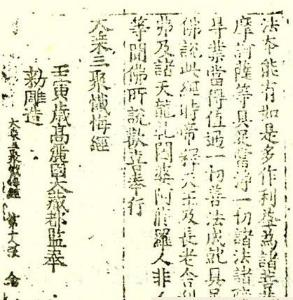 法本能有如是多作利益為諸菩薩
摩訶薩等具足當得一切諸法諸
具業當得值遇一切善法成就具足
佛說此經時帝釋天王及長者舍利
弗及諸天龍乹闥婆阿脩羅人非人
等聞佛所說歡喜奉行
大乘三聚懺悔經
壬寅歲高麗國大藏都監奉
勅雕造
大乘三聚懺悔經 第十八張